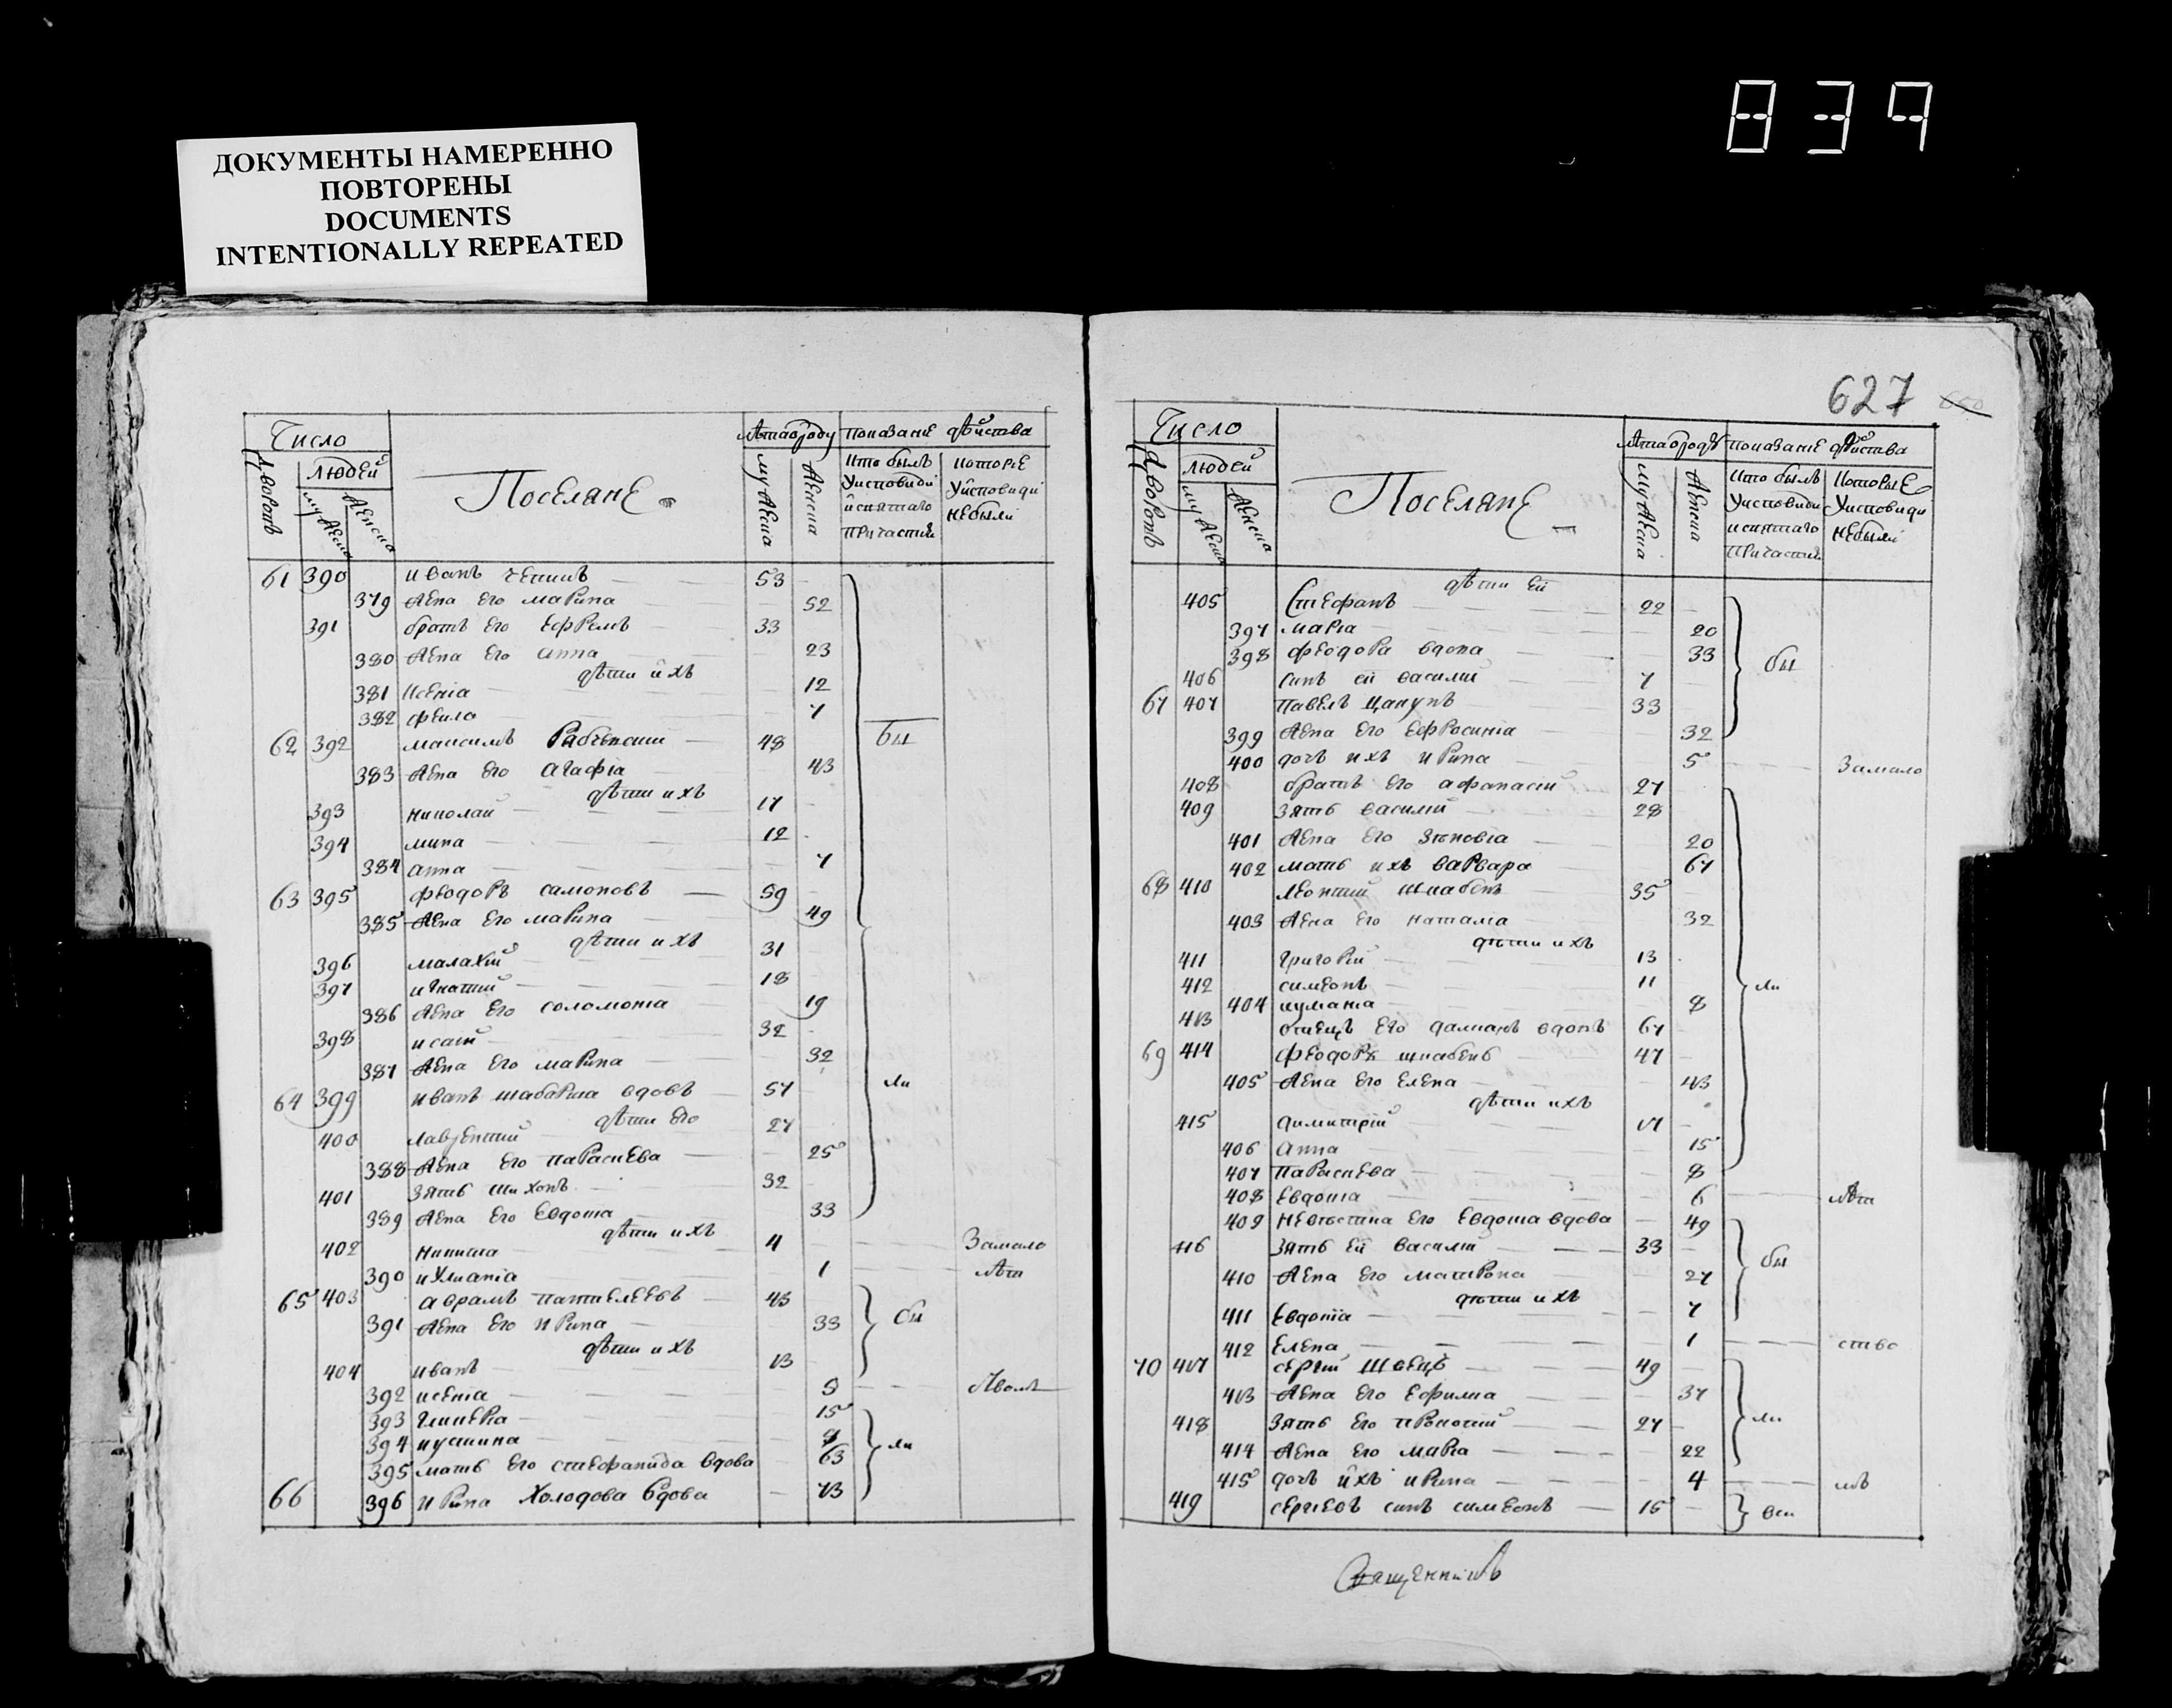 839
ДОКУМЕНТЫ НАМЕРЕННО
ПОВТОРЕНЫ
DOCUMENTS
INTENTIONALLY REPEATED
Число
Дворовъ
Людей
мужеска
женска
Поселяне
лѣта ѿ роду
мужеска
женска
показаніе дѣйства
кто былъ
у исповиди
и святаго
причастия
которые
у исповиди
не были
61 390 иванъ 53
379 жена его марина 52
391 братъ его Ефремъ 33
380 жена его анна 23
дѣти ихъ
381 ксенія 12
382 7
62 392 максимъ 48 бы
383 жена его агафія 43
дѣти ихъ
393 николай 17
394 мина 12
384 анна 7
63 395 феодоръ самоновъ 59
385 жена его марина 49
дѣти ихъ
396 малахій 31
397 игнатий 18
386 жена его соломонія 19
398 исаій 32
387 жена его марина 32
64 399 иванъ вдовъ 57 ли
дѣти его
400 лаврентий 27
388 жена его параскева 25
401 зять тихонъ 32
389 жена его Евдокиа 33
дѣти ихъ
402 никита 4 За мало
390 иулианіа 1 лѣт
65 403 аврамъ пантелеевъ 43 бы
391 жена его ирина 33
дѣти ихъ
404 иванъ 13
392 ксеніа 5
393 гликерія 15
394 иустина 9 ли
395 мать его стефанида вдова 63
66 396 ирина Холодова вдова 73
627
Число
Дворовъ
Людей
мужеска
женска
Поселяне
лѣта ѿ роду
мужеска
женска
показаніе дѣйства
кто былъ
у исповиди
и святаго
причастия
которые
у исповиди
не были
дѣти ей
405 Стефанъ 22
397 марія 20
398 феодора вдова 33 бы
406 синъ ей василий 7
67 407 павелъ Цапунъ 33
399 жена его Ефросиніа 32
400 дочь ихъ ирина 5 За мало
408 братъ его афанасий 27
409 зять василий 28
401 жена его зѣновіа 20
402 мать ихъ варвара 67
68 410 леонтий 35
403 жена его наталіа 32
дѣти ихъ
411 григорій 13
412 симеонъ 11 ли
404 иуліаніа 8
413 отецъ его даміанъ вдовъ 67
69 414 феодоръ 47
405 жена его Елена 43
дѣти ихъ
415 димитрій 17
406 анна 15
407 параскева 8
408 Евдокіа 6 лѣт
409 невѣстка его Евдокіа вдова 49
416 зять ей василий 33 бы
410 жена его матрона 27
дѣти ихъ
411 Евдокіа 7
412 Елена 1 ство
70 417 сергій швецъ 49
413 жена его Ефиміа 37
418 зять его прокопий 27 ли
414 жена его марія 22
415 дочь ихъ ирина 4
419 сергіевъ синъ симеонъ 15
Священникъ